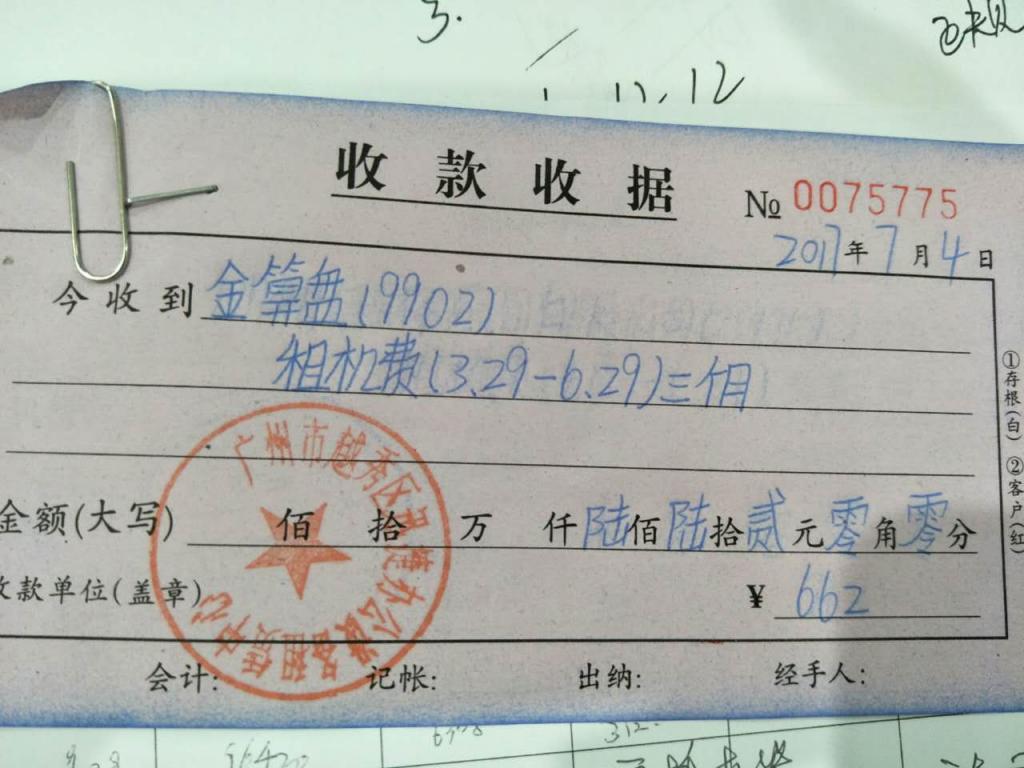 3.
11.12
收款收据
№ 0075775
2017年7月4日
今收到 金算盘(9902)
租机费(3.29-6.29)三个月
①存根(白) ②客户(红)
金额(大写) 佰 拾 万 仟陆佰陆拾贰元零角零分
收款单位(盖章)
¥ 662
广州市越秀区 办公设备租赁中心
会计: 记帐: 出纳: 经手人: